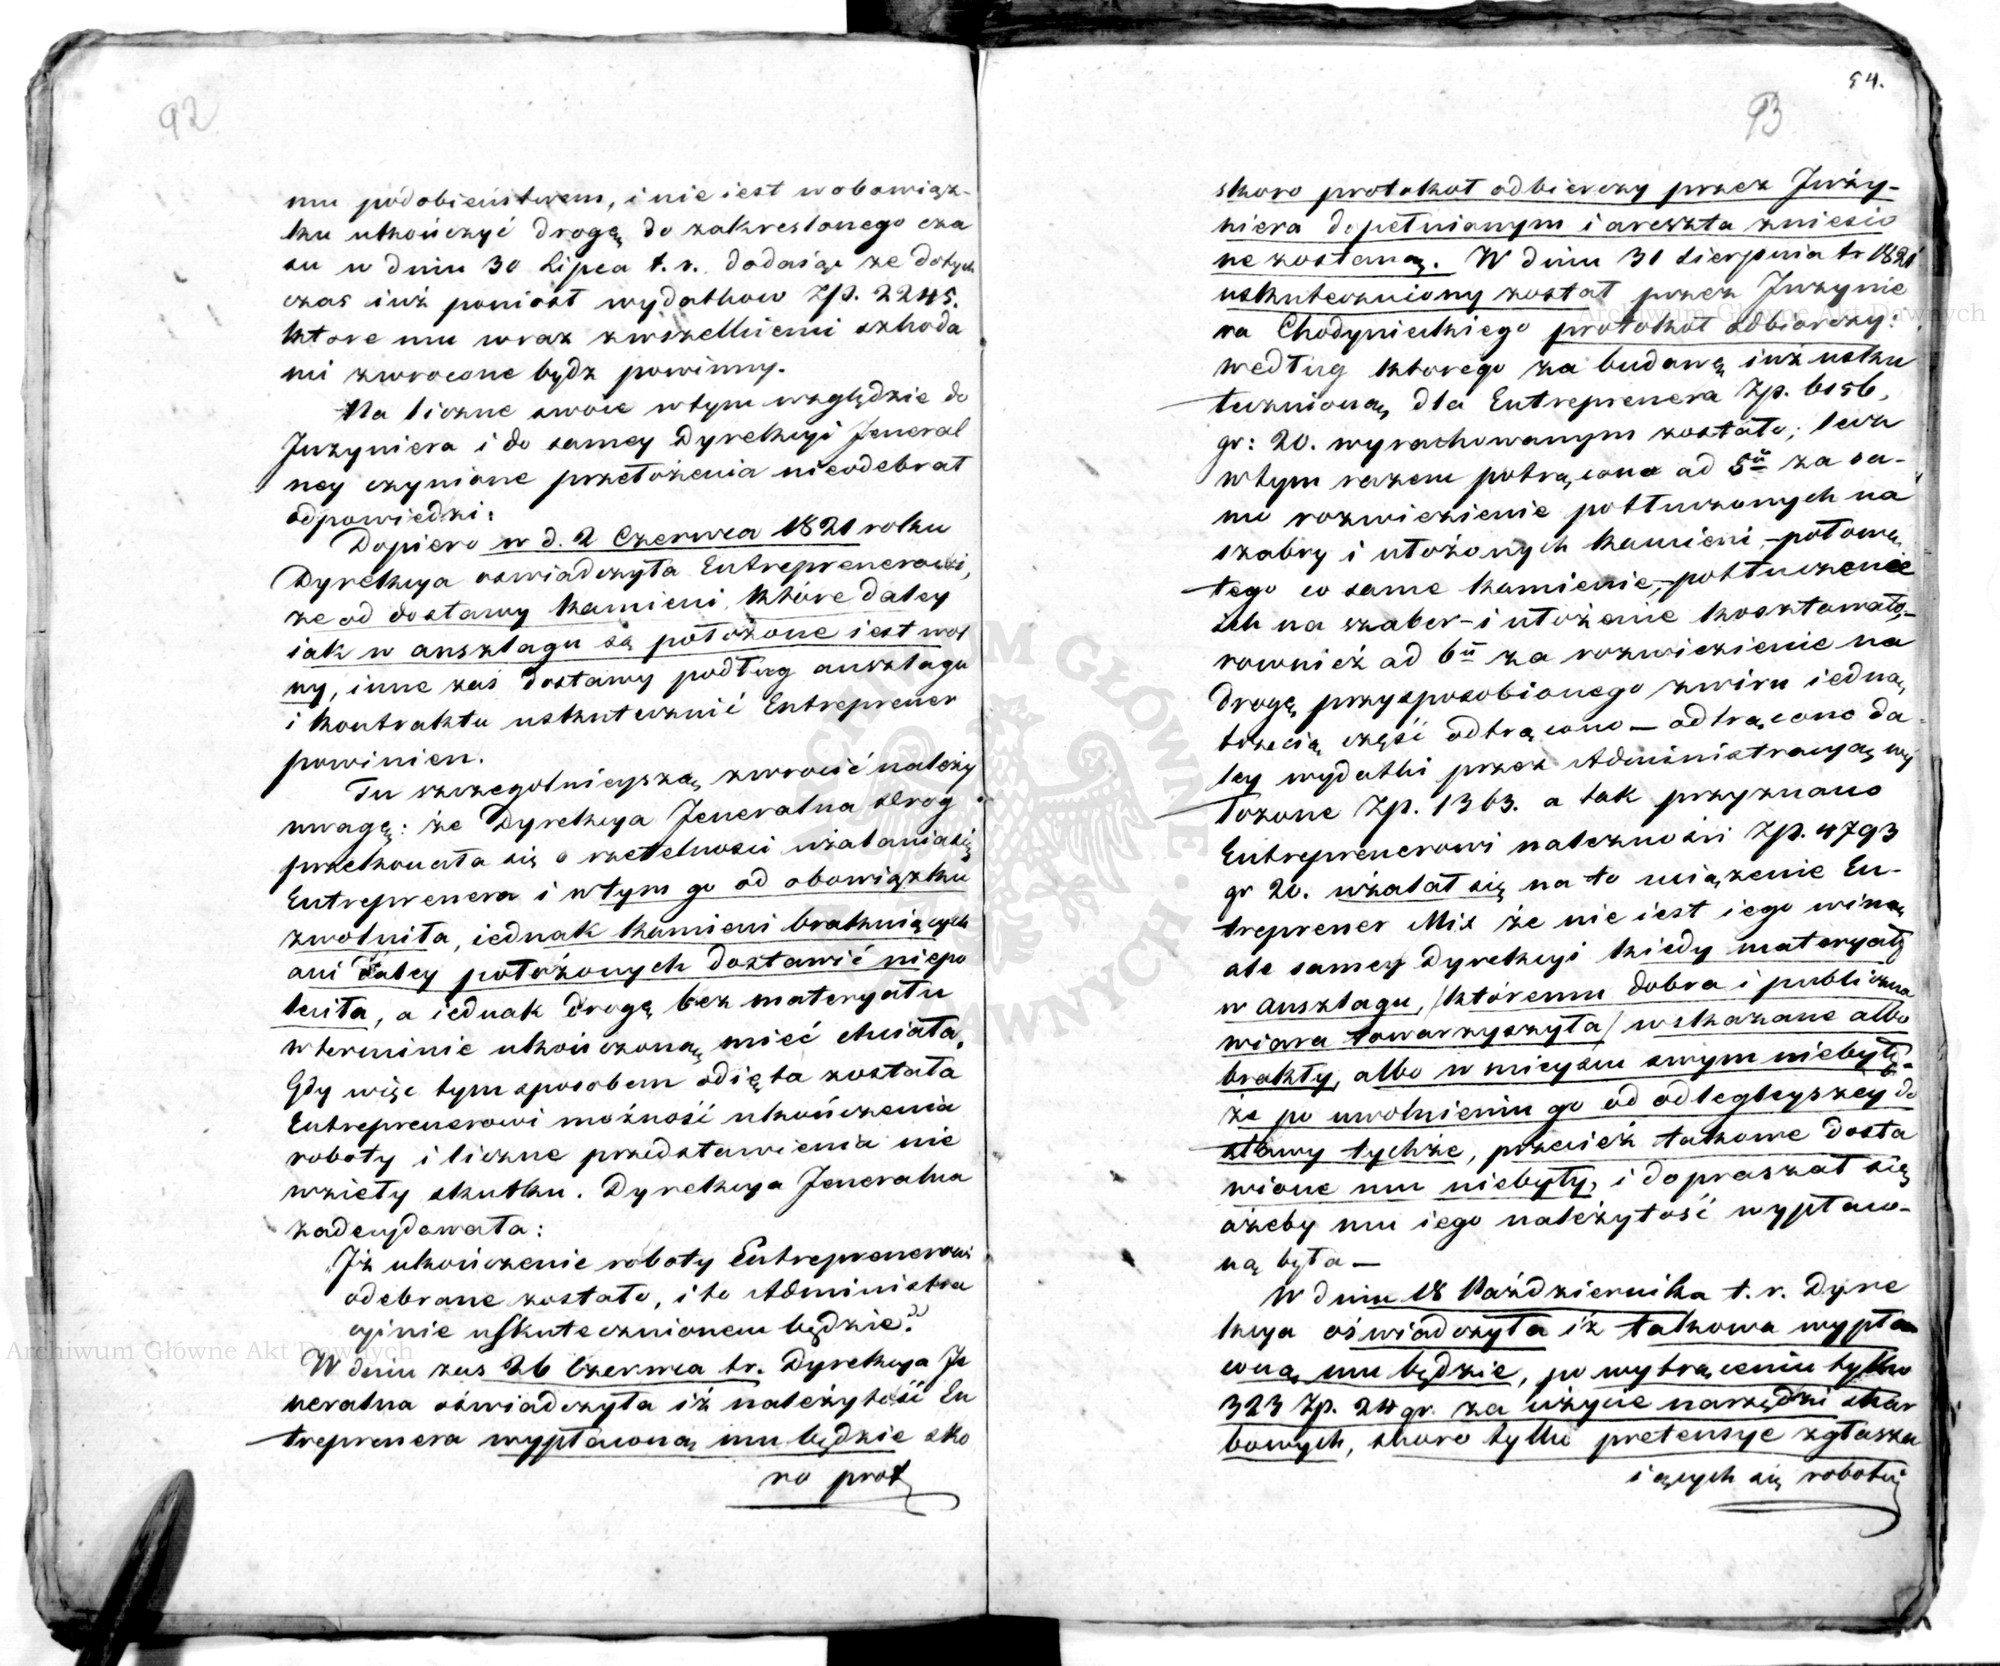 92
mu podobieństwem, i nie iest w obowiąz-
ku ukończyć drogę do zakreslonego cza
su w dniu 30 Lipca t. r. dodaiąc że dotych
czas iuż poniosł wydatkow Zp. 2245.
ktore mu wraz zwszelkiemi szkoda
mi zwrocone bydz powinny.
Na liczne swoie wtym względzie do
Inżyniera i do samey Dyrekcyi Jeneral
ney czynione przełożenia nieodebrał
odpowiedzi:
Dopiero w d. 2 Czerwca 1821 roku
Dyrekcya oswiadczyła Entreprenerowi,
że od dostawy kamieni które daley
iak w anszlagu są położone iest wol
ny, inne zaś dostawy podług anszlagu
i kontraktu uskutecznić Entreprener
powinien.
Tu szczegolnieyszą zwrocić należy
uwagę: że Dyrekcya Jeneralna Drog
przekonała się o rzetelnosci użalania się
Entreprenera i wtym go od obowiązku
zwolniła, iednak kamieni braknących
ani daley położonych dostawić niepo
leciła, a iednak drogę bez materyału
w terminie ukończoną mieć chciała.
Gdy więc tym sposobem odięta została
Entreprenerowi możność ukończenia
roboty i liczne przedstawienia nie
wzieły skutku. Dyrekcya Jeneralna
zadecydowała:
„Iż ukończenie roboty Entreprenerowi
odebrane zostało, i to Administra
cyinie uskutecznionem będzie."
W dniu zas 26 Czerwca tr. Dyrekcya Je
neralna oświadczyła iż należytość En
treprenera wypłaconą mu będzie sko
ro prot
54.
93
skoro protokoł odbiorczy przez Inży-
niera dopełnionym i areszta zniesio
ne zostaną. W dniu 31 Sierpnia tr 1821
uskuteczniony został przez Inżynie
ra Chodynickiego protokoł odbiorczy:
według ktorego za budowę iuż usku
tecznioną dla Entreprenera Zp. 6156,
gr: 20. wyrachowanym zostało; lecz
wtym razem potrącono ad 5ü za sa-
mo rozwiezienie potłuczonych na
szabry i ułożonych kamieni,- połowę
tego co same kamienie,- potłuczenie
ich na szaber - i ułożenie kosztowało,-
rownież ad 6ü za rozwiezienie na
drogę przysposobionego żwiru iedną
trzecią część odtrącono — odtrącono da
ley wydatki przez Administracyą wy
łożone Zp. 1363. a tak przyznano
Entreprenerowi należności Zp. 4793
gr 20. użalał się na to uciążenie En-
treprener Mix że nie iest iego winą
ale samey Dyrekcyi kiedy materyały
w anszlagu, /któremu dobra i publiczna
wiara towarzyszyła/ wskazane albo
brakły, albo w mieyscu swym niebyły.-
że po uwolnieniu go od odlegleyszey do
stawy tychże, przecież takowe dosta
wione mu niebyły, i dopraszał się
ażeby mu iego należytość wypłaco-
ną była —
W dniu 18 Października t. r. Dyre
kcya oświadczyła iż takowa wypła
coną mu będzie, po wytrąceniu tylko
323 Zp. 24 gr. za użycie narzędzi skar
bowych, skoro tylko pretensye zgłasza
iących się robotni
Archiwum Główne Akt Dawnych
Archiwum Główne Akt Dawnych
ARCHIWUM GŁÓWNE AKT DAWNYCH